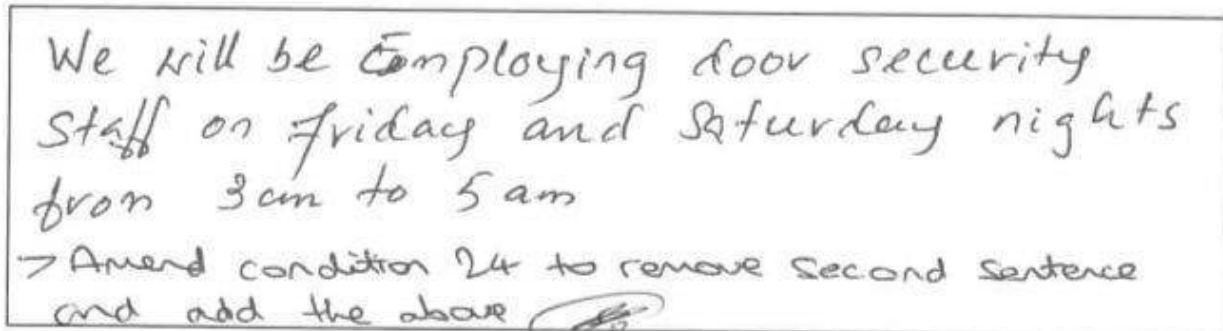 We will be Employing door security
staff on friday and Saturday nights
from 3am to 5am
→ Amend condition 24 to remove second sentence
and add the above